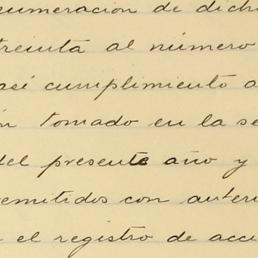 numeracion de dich
treinta al número
así cumplimiento a
tomado en la se
del presente año y
emitidos con anteri
el registro de acci